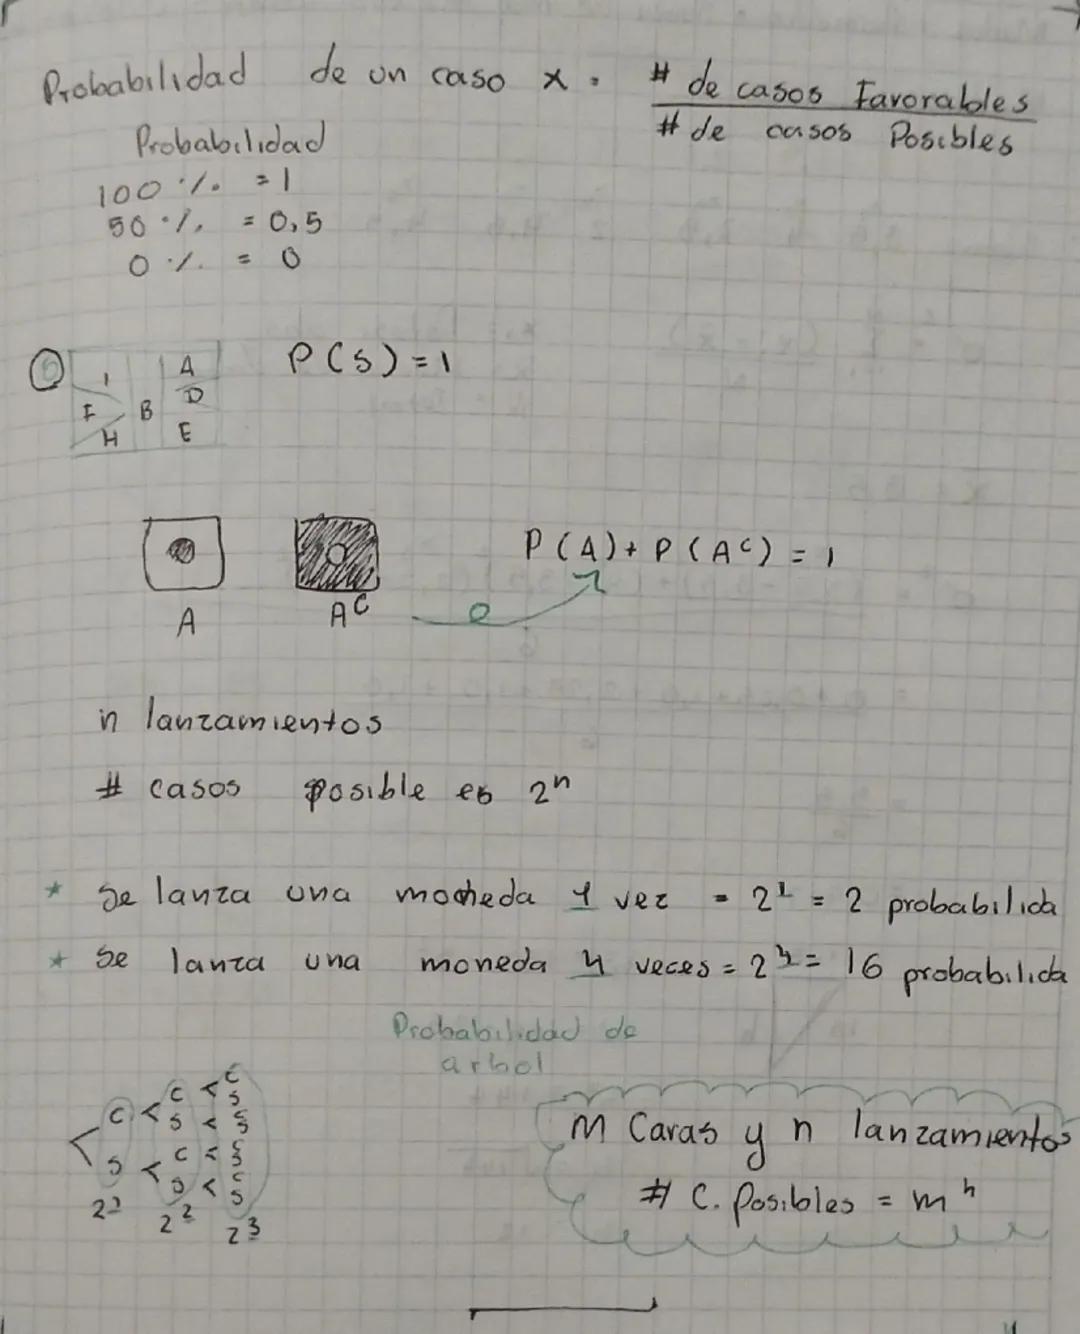 Probabilidad de un caso x = # de casos Favorables
# de casos Posibles
Probabilidad
100 % = 1
50 % = 0,5
0 % = 0
P(S) = 1
I A
D
F B
H E
P(A) + P(A^c) = 1
A A^c
n lanzamientos
# casos posible es 2^n
* Se lanza una moneda 1 vez = 2^1 = 2 probabilida
* Se lanza una moneda 4 veces = 2^4 = 16 probabilida
Probabilidad de
arbol
C < C < C
S
S < C
S
S < C < C
S
S < C
S
2^1 2^2 2^3
M Caras y n lanzamientos
# C. Posibles = m^n